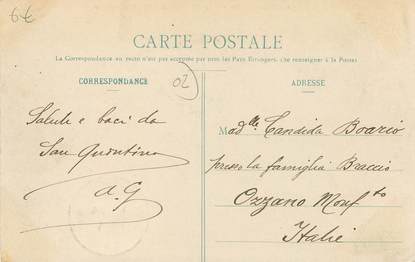 6€
CARTE POSTALE
La Correspondance au recto n'est pas acceptée par tous les Pays Etrangers. (Se renseigner à la Poste)
CORRESPONDANCE
02
ADRESSE
Salute e baci da
San Quintino
A. G
Madelle Candida Boario
presso la famiglia Braccio
Ozzano Monfto
Italie